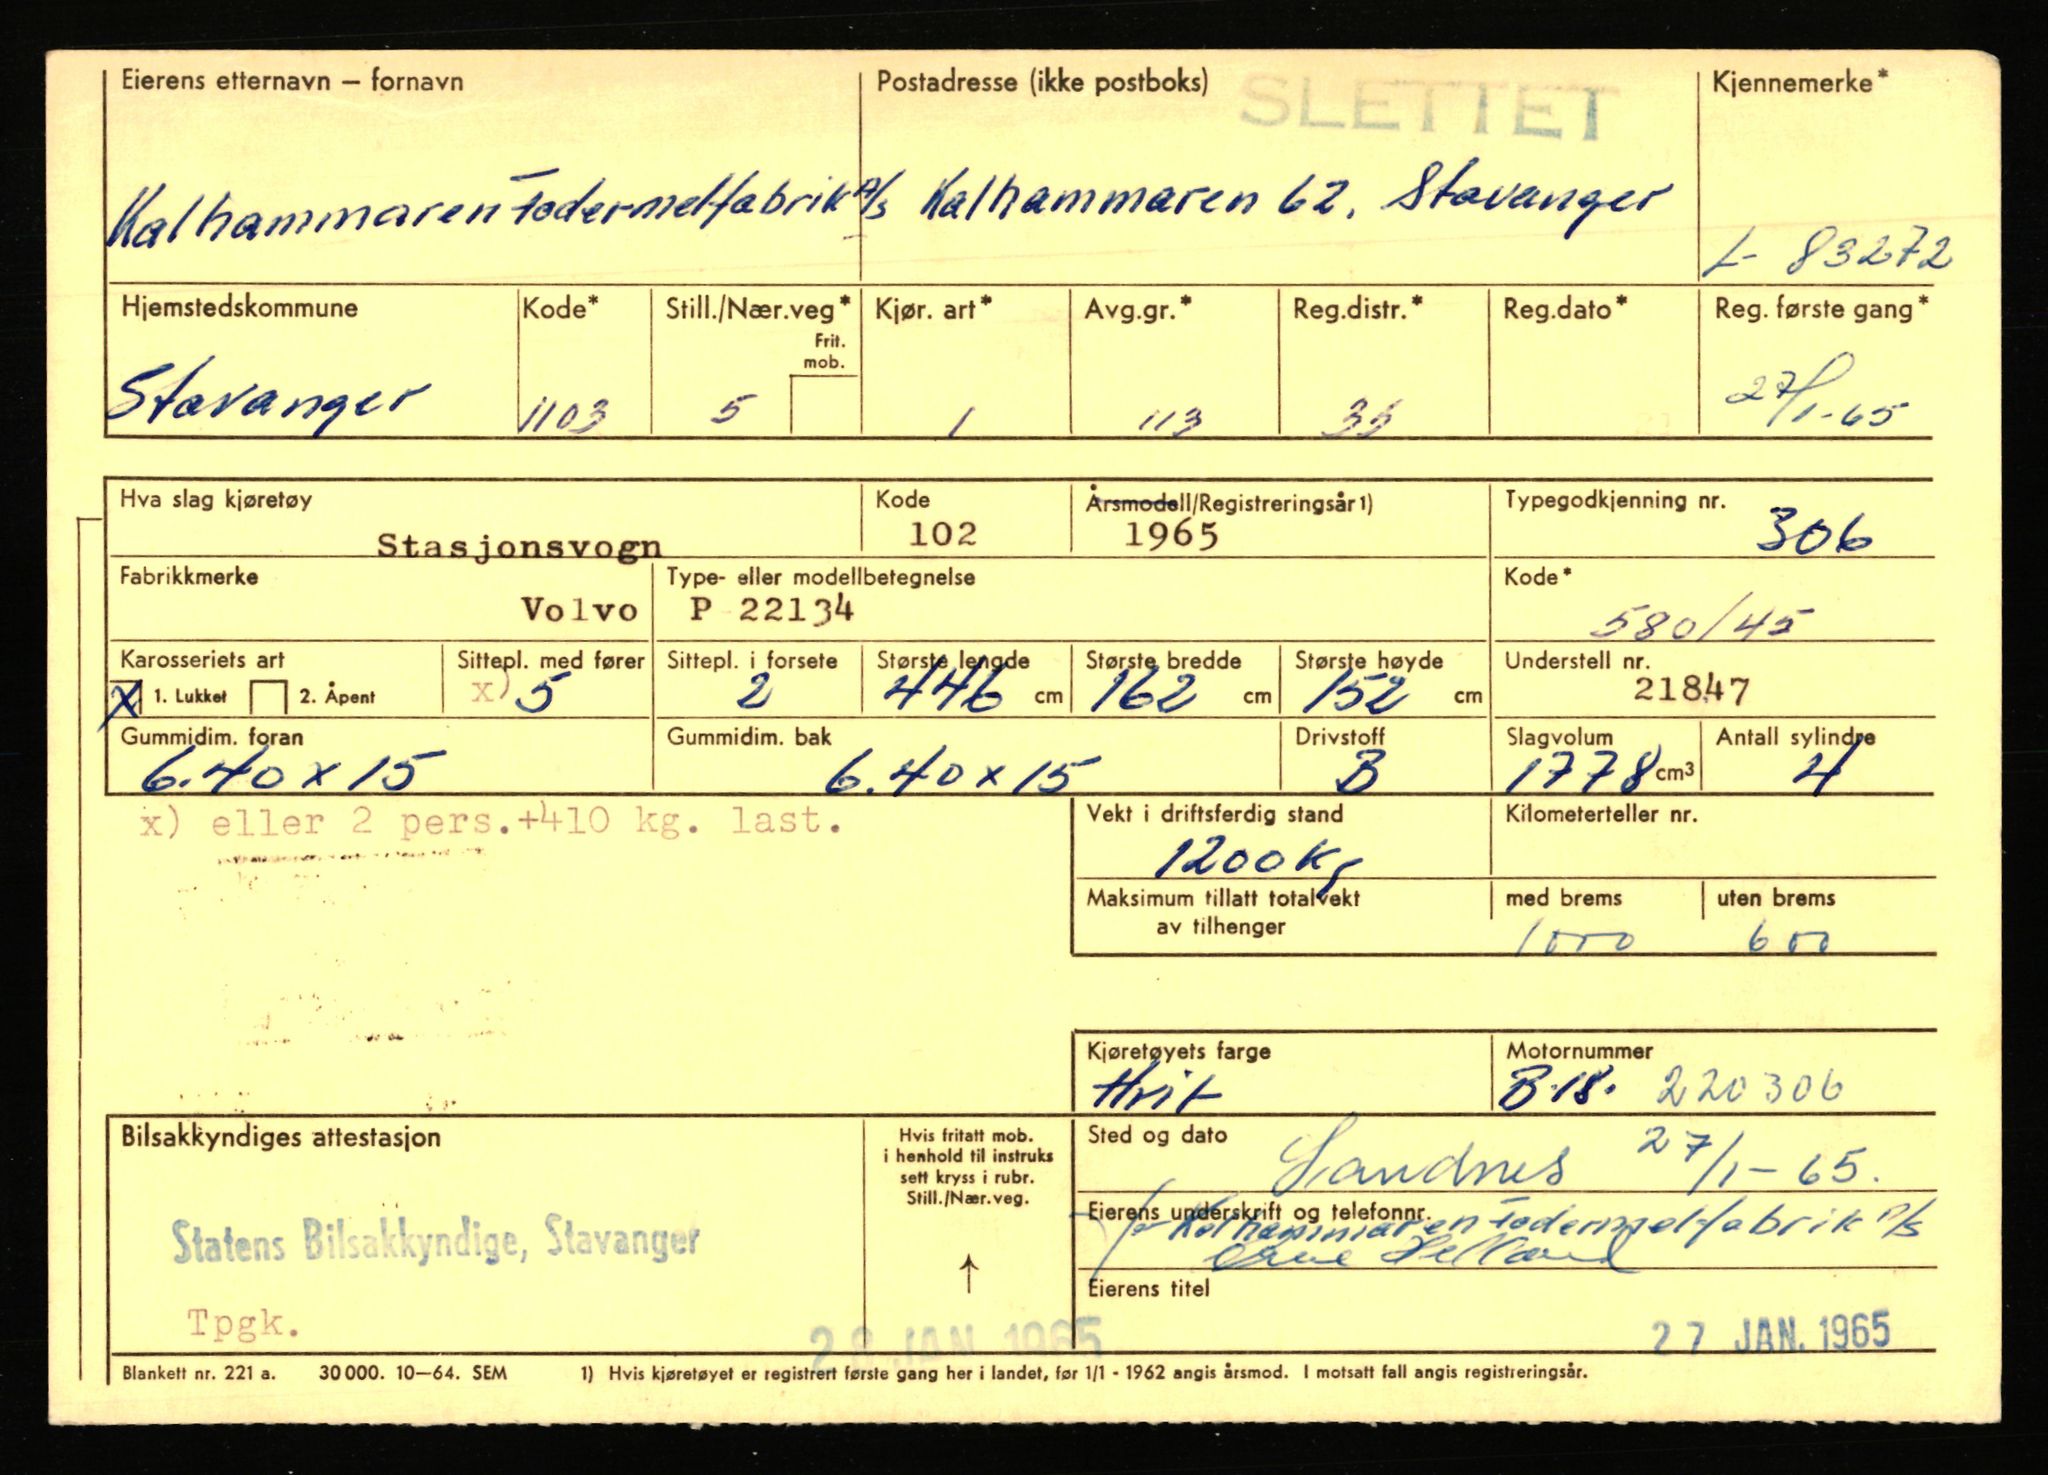 Eierens etternavn — fornavn Postadresse (ikke postboks) SLETTET Kjennemerke*
Kalhammaren Fodermelfabrik A/S Kalhammaren 62. Stavanger
L- 83272
Hjemstedskommune Kode* Still./Nær.veg* Kjør. art* Avg.gr.* Reg.distr.* Reg.dato* Reg. første gang*
Frit. mob.
Stavanger 1103 5 1 113 33 27/1-65
Hva slag kjøretøy Kode Årsmodell/Registreringsår1) Typegodkjenning nr.
Stasjonsvogn 102 1965 306
Fabrikkmerke Type- eller modellbetegnelse Kode*
Volvo P 22134 580/45
Karosseriets art Sittepl. med fører Sittepl. i forsete Største lengde Største bredde Største høyde Understell nr.
X 1. Lukket 2. Åpent x) 5 2 446 cm 162 cm 152 cm 21847
Gummidim. foran Gummidim. bak Drivstoff Slagvolum Antall sylindre
6.40 x 15 6.40 x 15 B 1778 cm3 4
x) eller 2 pers.+410 kg. last. Vekt i driftsferdig stand Kilometerteller nr.
1200 kg
Maksimum tillatt totalvekt med brems uten brems
av tilhenger 1000 600
Kjøretøyets farge Motornummer
Hvit B.18. 220306
Bilsakkyndiges attestasjon Hvis fritatt mob. Sted og dato
i henhold til instruks Sandnes 27/1-65.
sett kryss i rubr.
Still./Nær.veg. Eierens underskrift og telefonnr.
Statens Bilsakkyndige, Stavanger for Kalhammaren Fodermelfabrik A/S
↑ Helland
Eierens titel
Tpgk. 28 JAN. 1965 27 JAN. 1965
Blankett nr. 221 a. 30 000. 10—64. SEM 1) Hvis kjøretøyet er registrert første gang her i landet, før 1/1 - 1962 angis årsmod. I motsatt fall angis registreringsår.